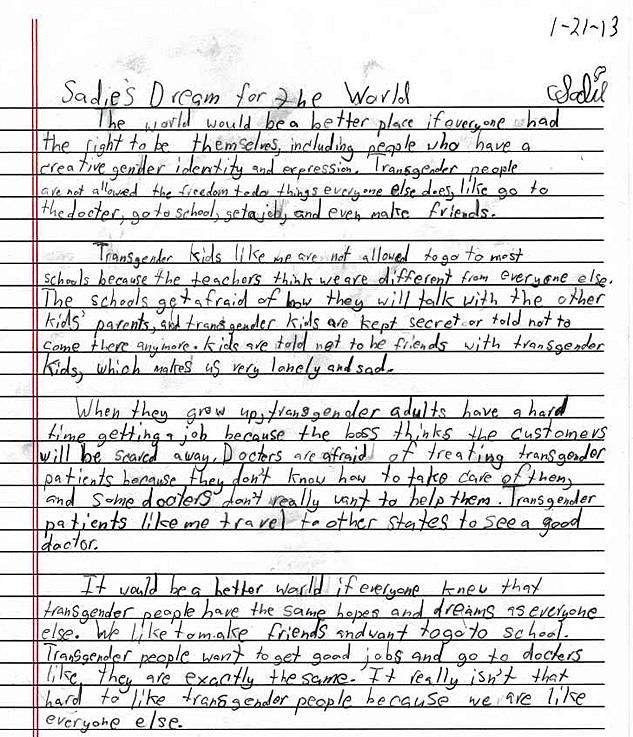 1-21-13
Sadie's Dream for the World
Sadie
The world would be a better place if everyone had
the right to be themselves, including people who have a
creative gender identity and expression. Transgender people
are not allowed the freedom to do things everyone else does, like go to
the docter, go to school, get a job, and even make friends.
Transgender kids like me are not allowed to go to most
schools because the teachers think we are different from everyone else.
The schools get afraid of how they will talk with the other
kids' parents, and transgender kids are kept secret or told not to
come there anymore. Kids are told not to be friends with transgender
kids, which makes us very lonely and sad.
When they grow up, transgender adults have a hard
time getting a job because the boss thinks the customers
will be scared away. Docters are afraid of treating transgender
patients because they don't know how to take care of them,
and some docters don't really want to help them. Transgender
patients like me travel to other states to see a good
doctor.
It would be a better world if everyone knew that
transgender people have the same hopes and dreams as everyone
else. We like to make friends and want to go to school.
Transgender people want to get good jobs and go to docters
like, they are exactly the same. It really isn't that
hard to like transgender people because we are like
everyone else.